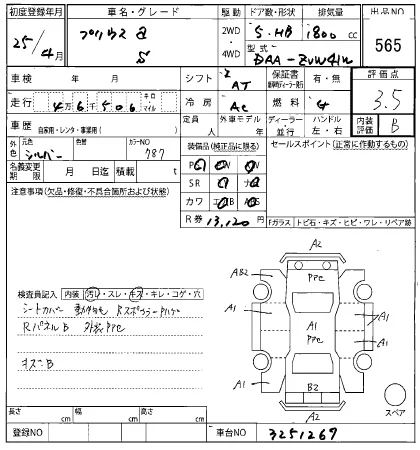 初度登録年月 車名・グレード 駆動 ドア数・形状 排気量 出品NO
25/4月 プリウスα S 2WD・4WD 5・HB 1800cc 565
型式 DAA-ZVW41W
車検 年 月 シフト AT 保証書 有・無 評価点 3.5
走行 4万6千506 キロ・マイル 冷房 AC 燃料
車歴 自家用・レンタ・事業用( ) 定員 人 外車モデル 年 ディーラー・並行 ハンドル 左・右 内装評価 B
外色 元色 シルバー 色替 カラーNO 787 装備品(純正品に限る) セールスポイント(正常に作動するもの)
名義変更期限 月 日迄 積載 t
SR ナビ
カワ エアB ABS
注意事項(欠品・修復・不具合箇所および状態) R券 13,120
Fガラス トビ石・キズ・ヒビ・ワレ・リペア跡
A2
AB2 PPC A1
A1 A1 PPC A1
A1 B2 A1
A2
スペア
検査員記入 内装 汚れ・スレ・キズ・キレ・コゲ・穴
シートカバー
RパネルB 外装PPC
キズ・B
長さ cm 幅 cm 高さ cm
登録NO 車台NO 3251267